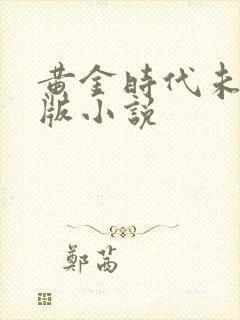 黄金時代未
版小説
鄭茜